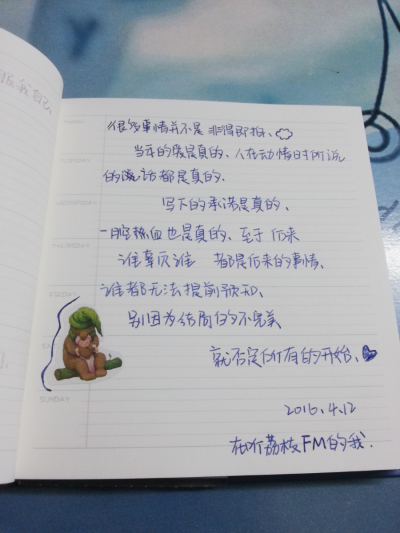 很多事情并不是 非得即拍、
当年的爱是真的、人在动情时所说
的说话都是真的.
写下的承诺是真的、
一腔热血也是真的、至于后来
谁辜负谁 都是后来的事情、
谁都无法提前预知、
别因为结局的不完美
就否定所有的开始、
2016.4.12
在听荔枝FM的我.
TUESDAY
WEDNESDAY
THURSDAY
FRIDAY
SUNDAY
我自己